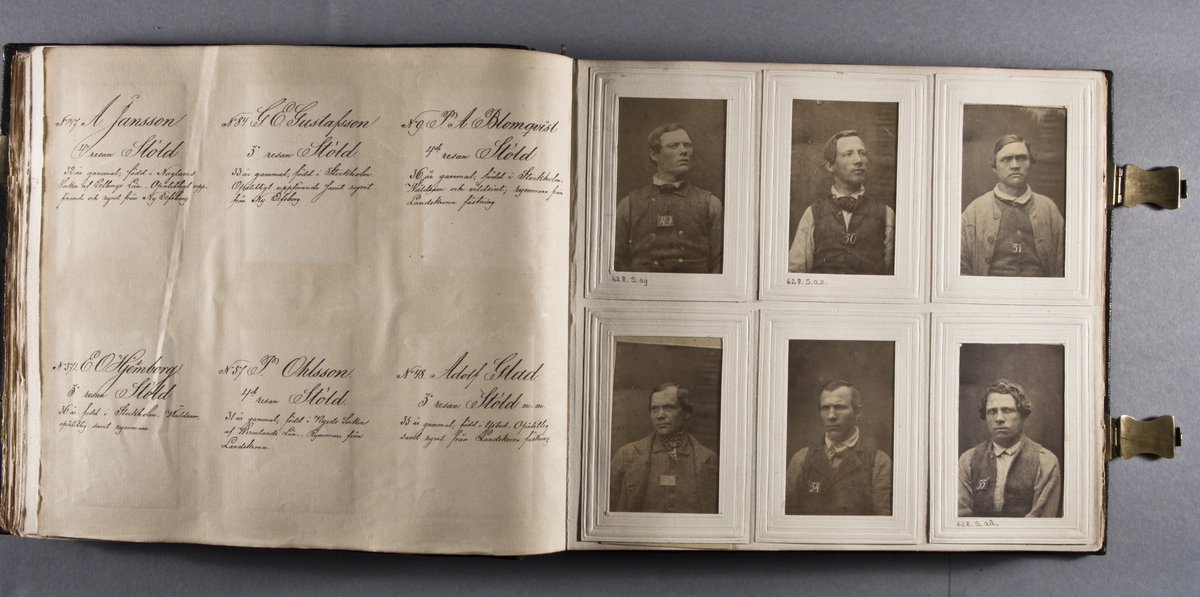 A Jansson
resan Stöld
32 år gammal, född i Naglums
Socken af Elfsborgs Län. Opålitligt upp-
förande och rymt från Ny Elfsborg
N 84. G E Gustafsson
3e resan Stöld
33 år gammal, född i Stockholm
Opålitligt uppförande samt rymt
från Ny Elfsborg
N 9. P A Blomqvist
4de resan Stöld
36 år gammal, född i Stockholm.
Våldsam och vildsint; rymmare från
Landskrona fästning.
E O Hjemborg
3e resan Stöld
36 år född i Stockholm. Våldsam,
opålitlig samt rymmare
N 57 P Ohlsson
4de resan Stöld.
31 år gammal, född i Socken
af Wermlands Län. Rymmare från
Landskrona.
N 48. Adolf Glad
3e resan Stöld m.m.
35 år gammal, född i Ystad. Opålitlig
samt rymt från Landskrona fästning
49
50
51
628. S. ay
628. S. az.
54
55
628. S. aä.